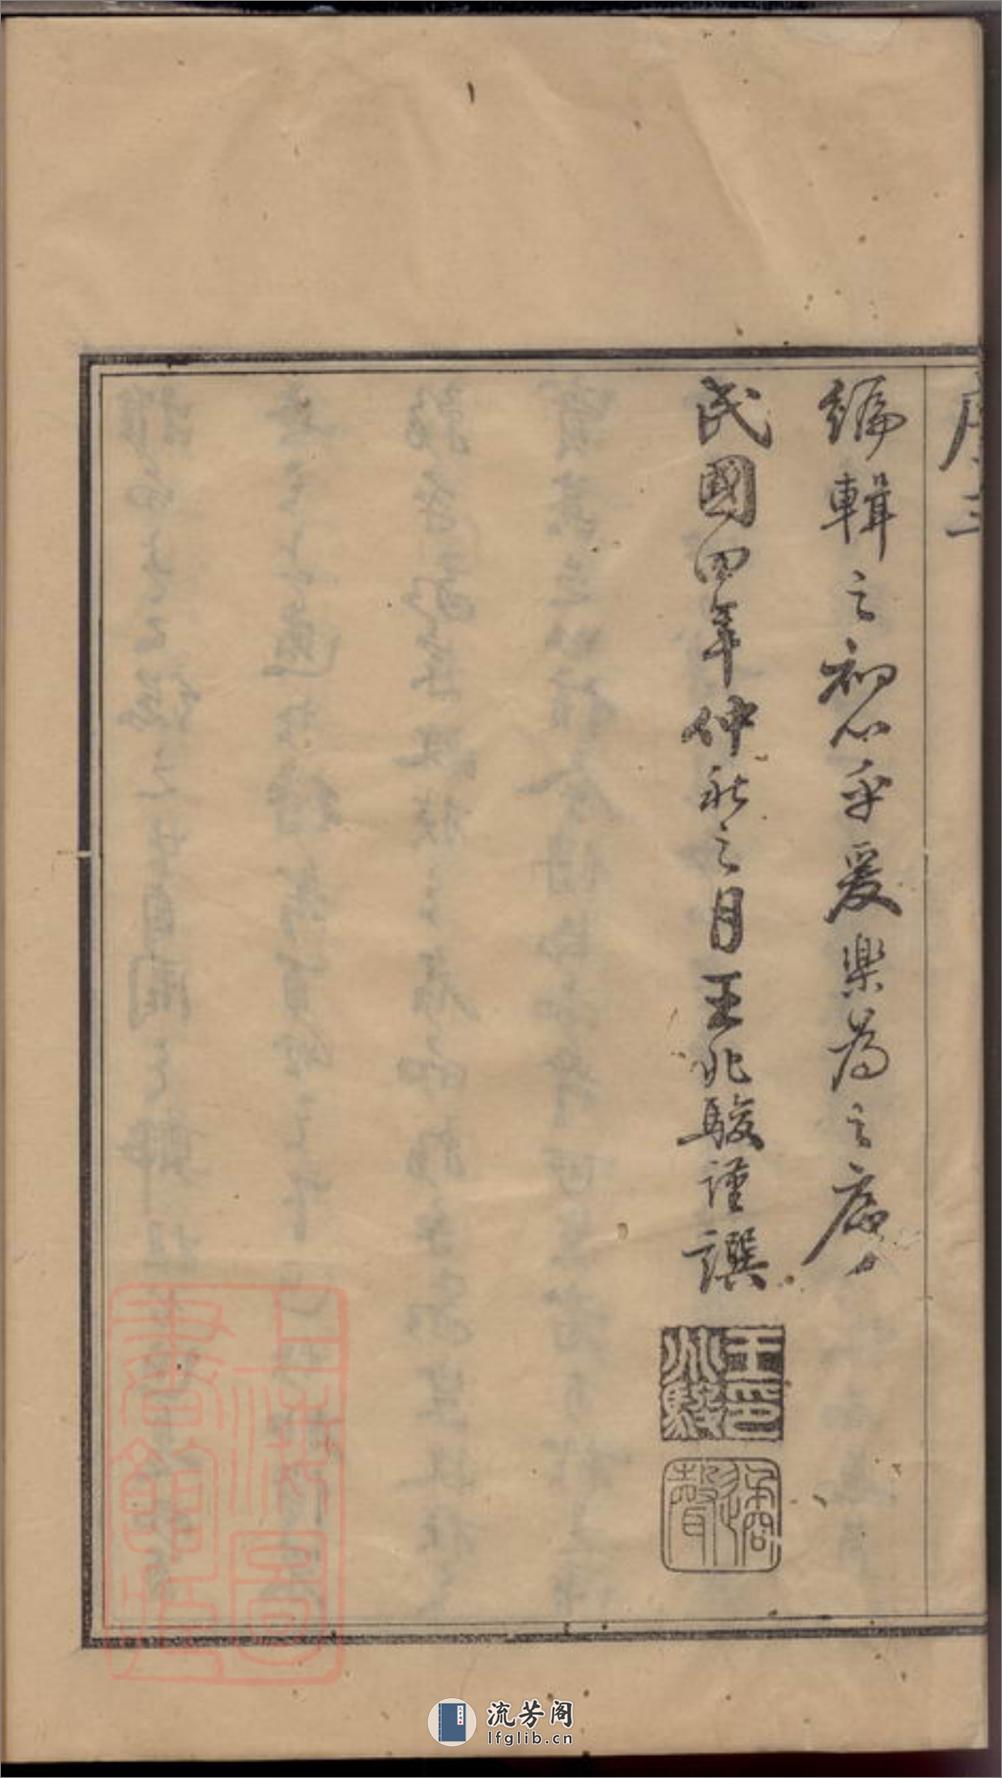 序三
編輯之初心乎爰樂為之序
民國四年仲秋之月王兆駿謹譔
王兆駿印
上海圖書館藏
流芳阁
lfglib.cn